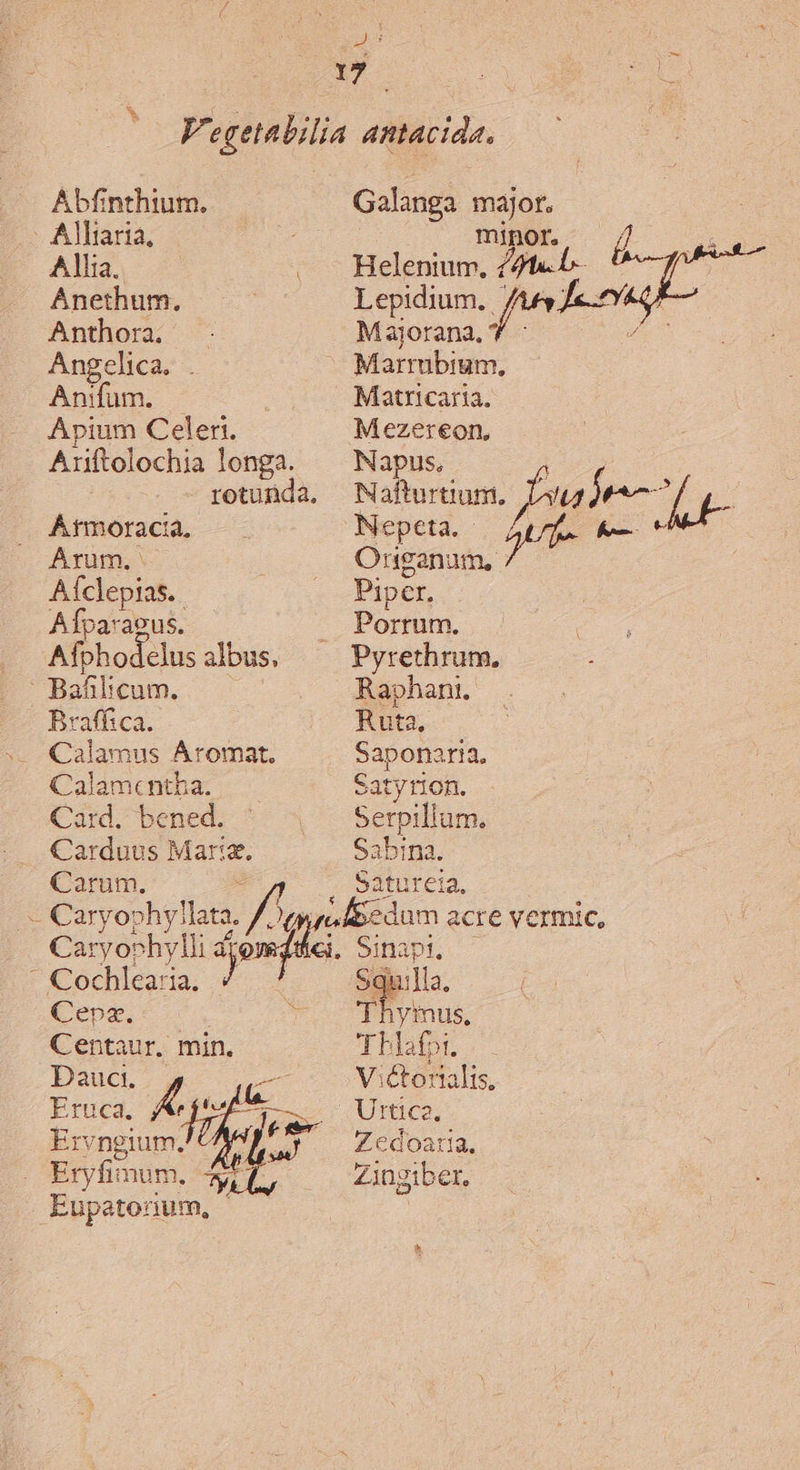 17
Vegetabilia antacida.
Abſinthium.
Alliaria.
Allia.
Anethum.
Anthora.
Angelica.
Aniſum.
Apium Celeri.
Ariſtolochia longa.
rotunda.
Armoracia.
Arum.
Aſclepias.
Aſparagus.
Aſphodelus albus.
Baſilicum.
Braſſica.
Calamus Aromat.
Calamentha.
Card. bened.
Carduus Mariæ.
Carum.
Caryophyllata.
Caryophylli aromatici.
Cochlearia.
Cepæ.
Centaur. min.
Dauci.
Eruca.
Eryngium.
Eryſimum.
Eupatorium.
Galanga major.
minor.
Helenium.
Lepidium.
Majorana.
Marrubium.
Matricaria.
Mezereon.
Napus.
Naſturtium.
Nepeta.
Origanum.
Piper.
Porrum.
Pyrethrum.
Raphani.
Ruta.
Saponaria.
Satyrion.
Serpillum.
Sabina.
Satureia.
Sedum acre vermic.
Sinapi.
Squilla.
Thymus.
Thlaſpi.
Victorialis.
Urtica.
Zedoaria.
Zingiber.